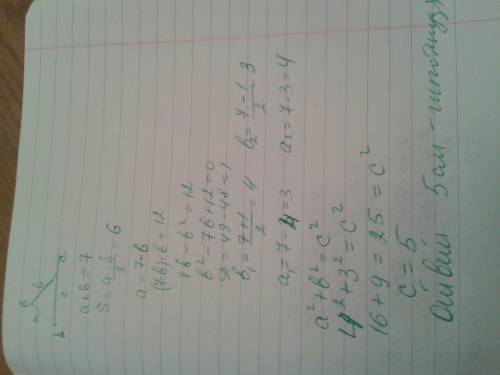 a b
A c C
a+b=7
S=a·b/2=6
a=7-b
(7-b)·b=12
7b-b²=12
b²-7b+12=0
D=49-48=1
b₁=7+1/2=4 b₂=7-1/2=3
a₁=7-4=3 a₂=7-3=4
a²+b²=c²
4²+3²=c²
16+9=25=c²
c=5
5см-гипотенуза